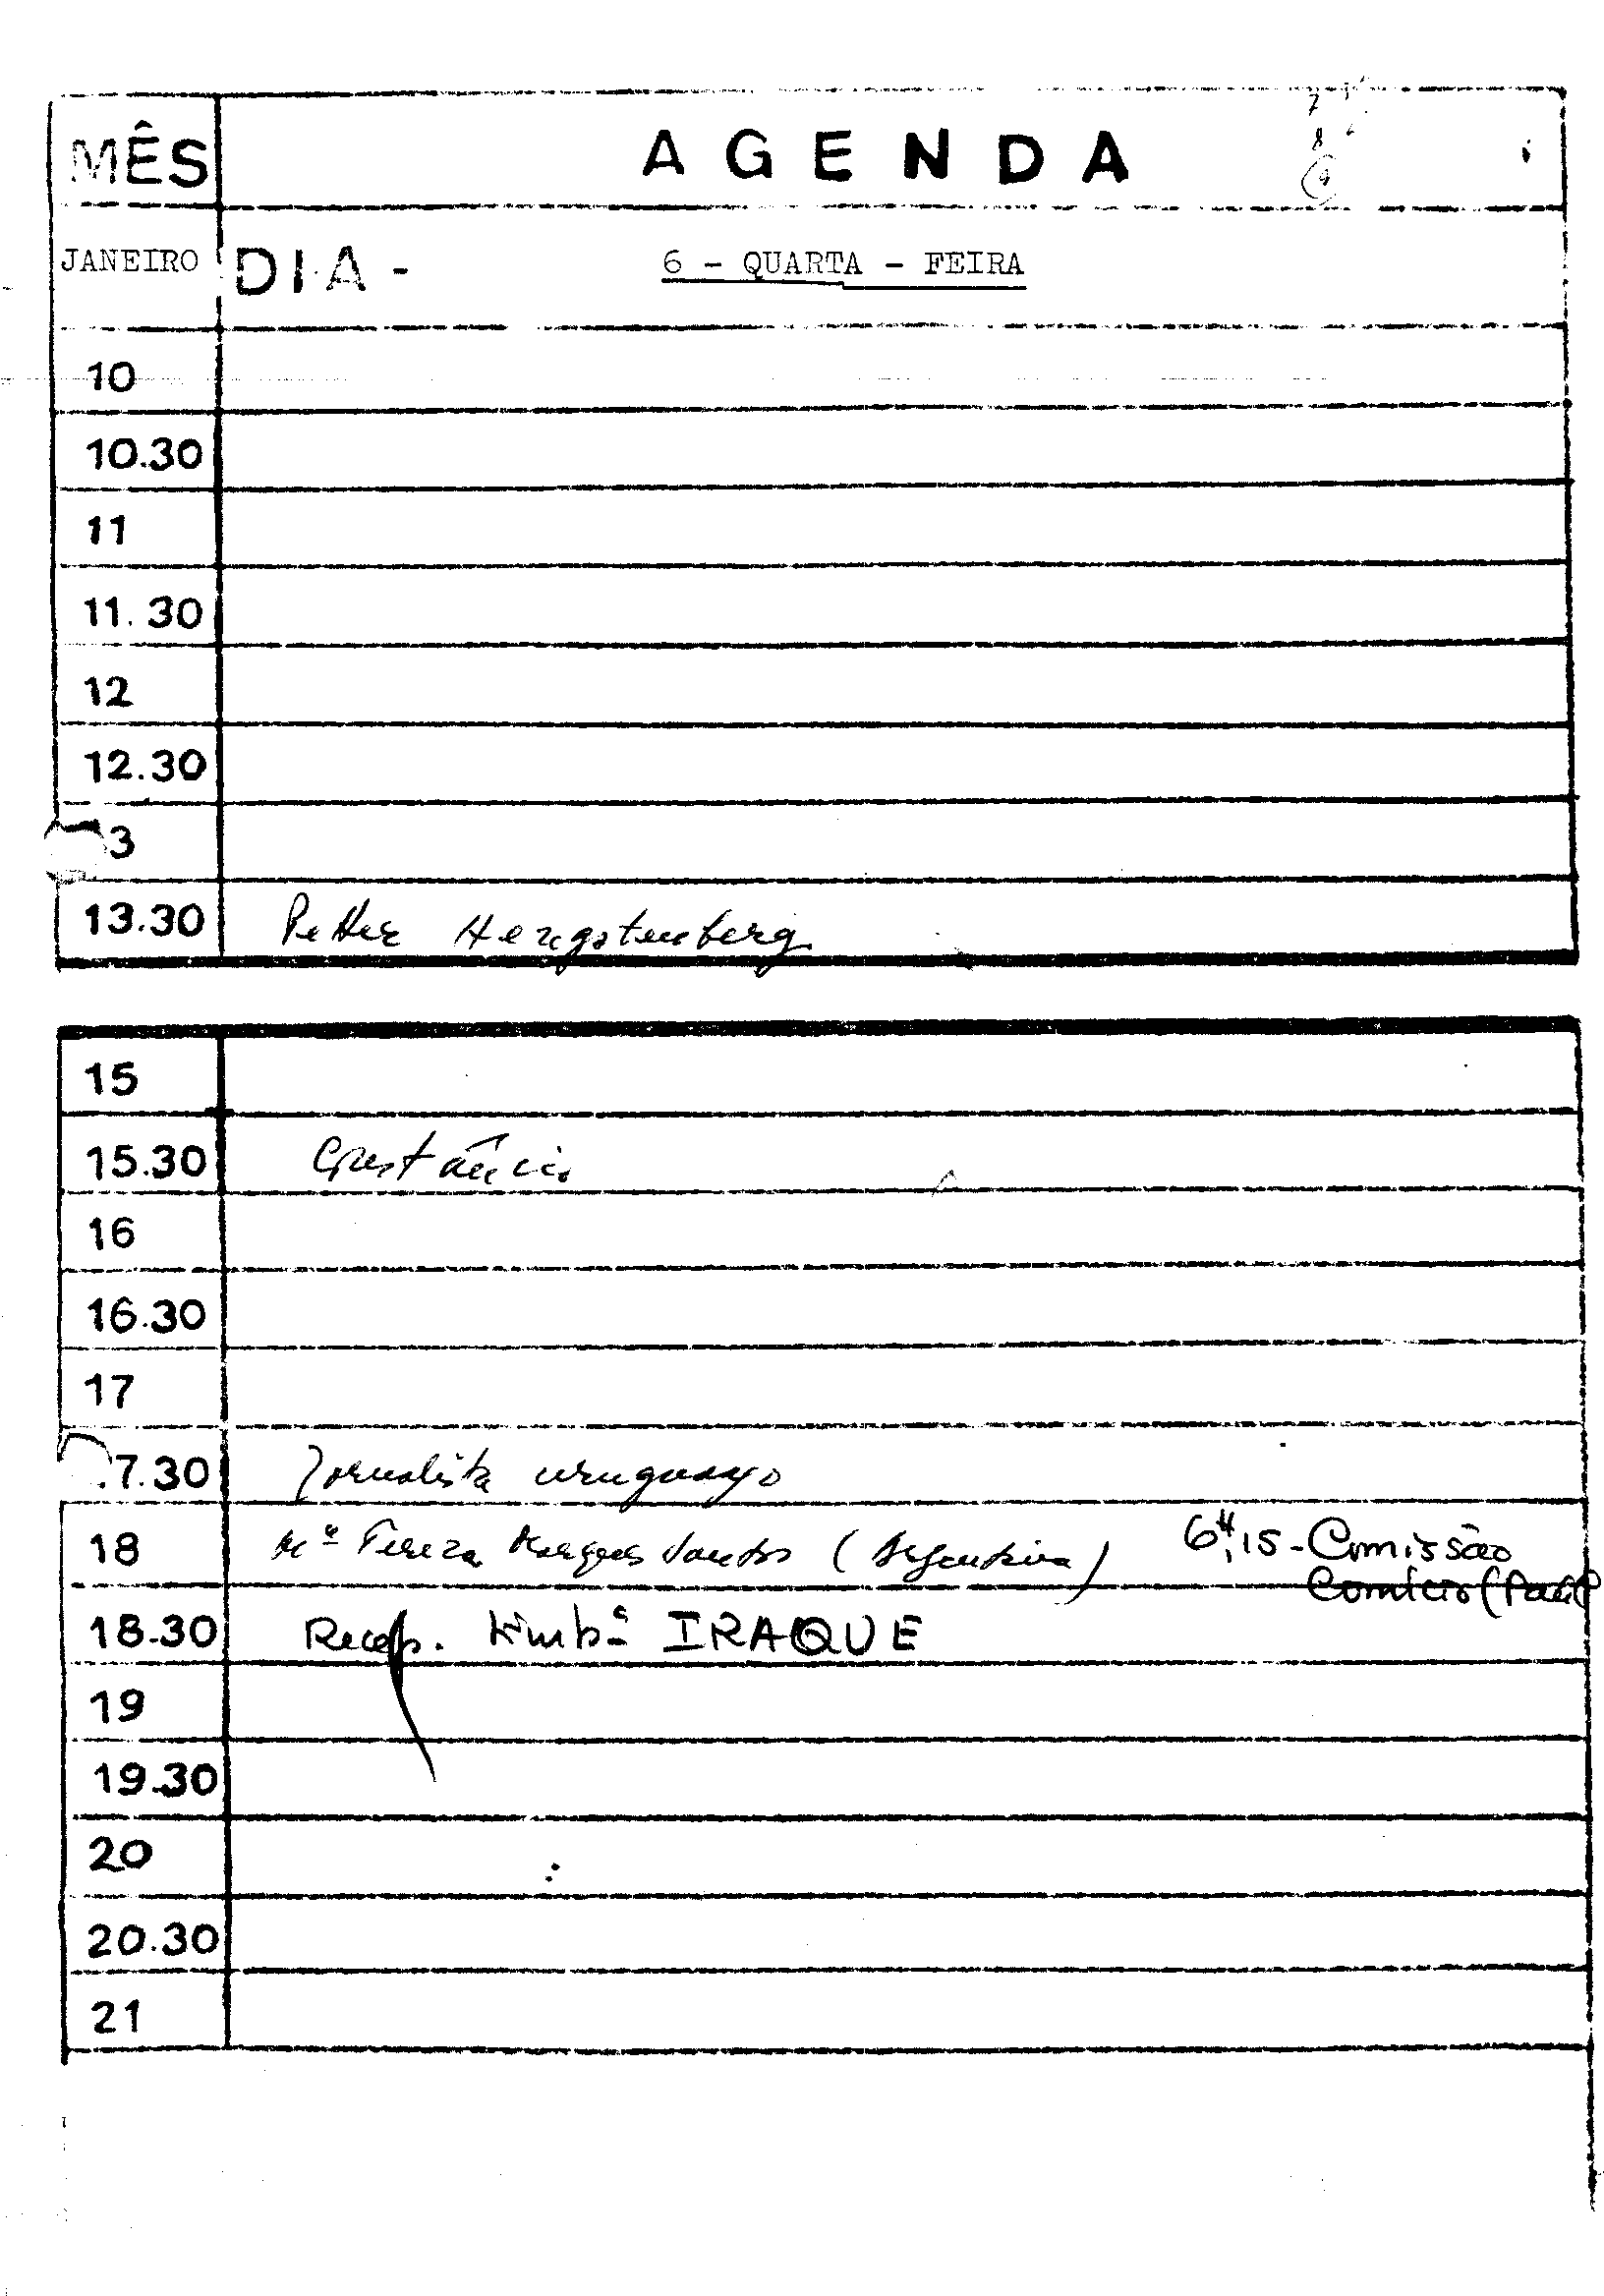 7
8
9
MÊS AGENDA
JANEIRO DIA - 6 - QUARTA - FEIRA
10
10.30
11
11.30
12
12.30
3
13.30 Petter Hengstenberg
15
15.30 Constâncio
16
16.30
17
7.30 Jornalista uruguayo
18 Mª Tereza Marques Santos (Argentina) 6H,15 - Comissão
Comício (
18.30 Recep. Emb.ª IRAQUE
19
19.30
20
20.30
21